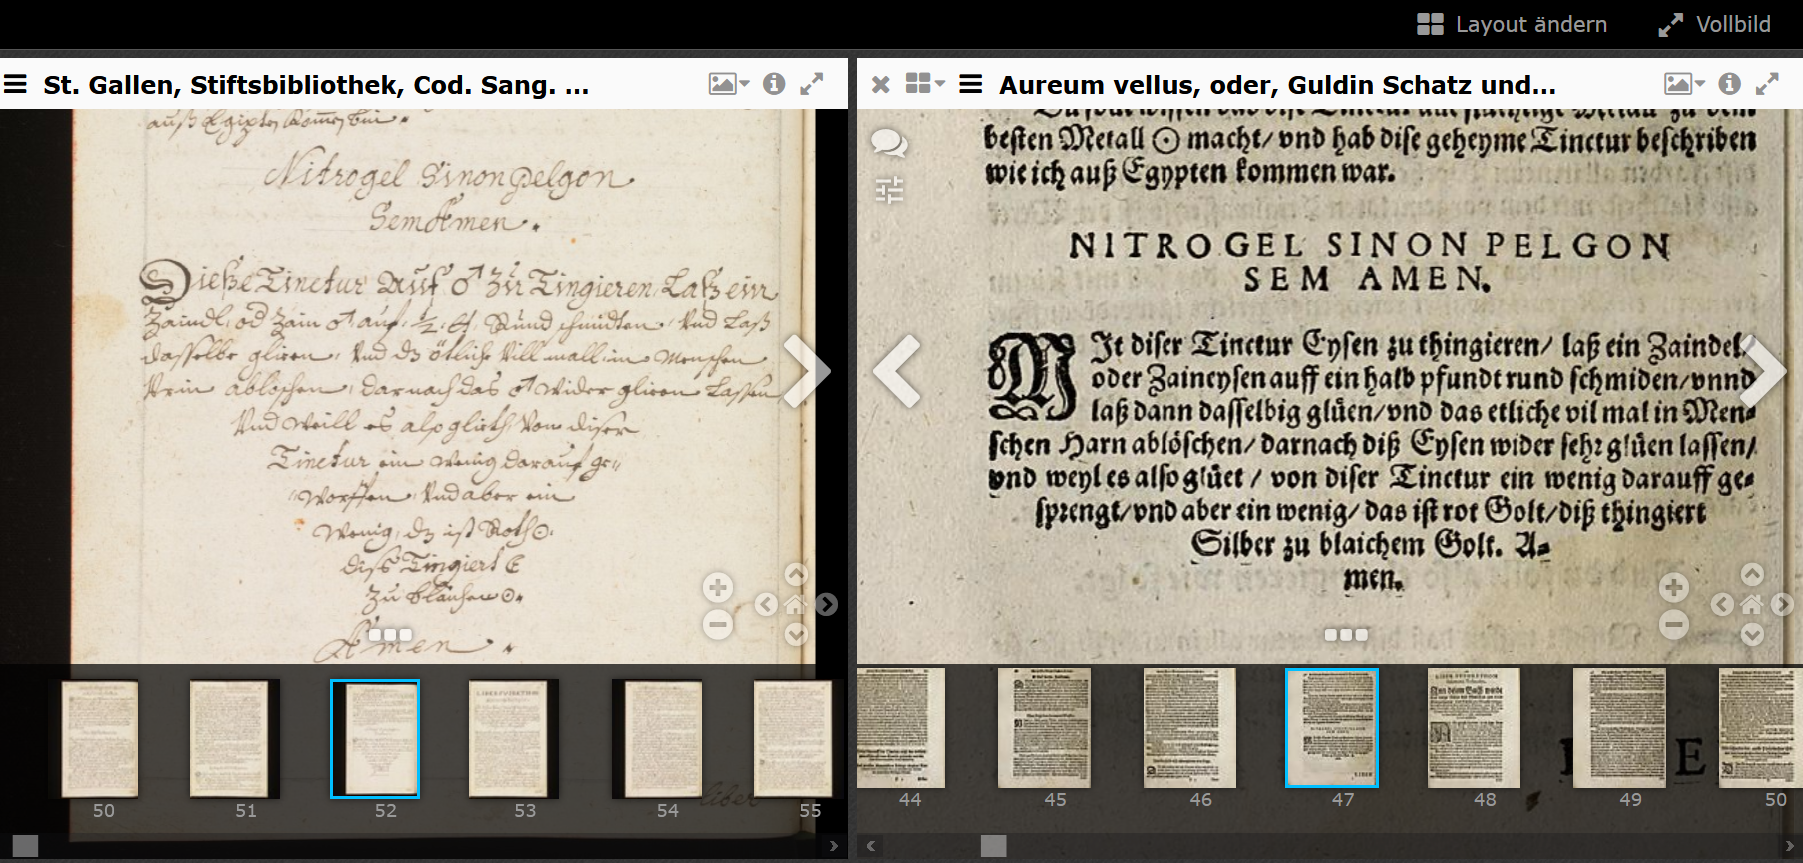 Layout ändern
Vollbild
St. Gallen, Stiftsbibliothek, Cod. Sang. ...
auß Egipten kommen bin.
Nitrogel Sinon Pelgon
Sem Amen.
Dieße Tinctur auf ♂ zu Tingieren Laß ein
Zaindl od Zain ♂ auf ½ Rund schmidten Vnd Laß
dasselbe glieen Vnd dz ötliche Vill mall im Menschen
Vrin ablöschen darnach das ♂ wider glieen Lassen
Vnd Weill es also glieth Von diser
Tinctur ein Wenig darauf ge=
=worffen Vnd aber ein
Wenig, dz ist Roth ☉.
diß Tingiert
zu blaichen ☉.
Amen.
liber
50
51
52
53
54
55
Aureum vellus, oder, Guldin Schatz und...
besten Metall ☉ macht/ vnd hab dise geheyme Tinctur beschriben
wie ich auß Egypten kommen war.
NITROGEL SINON PELGON
SEM AMEN.
MIt diser Tinctur Eysen zu thingieren/ laß ein Zaindel/
oder Zaineysen auff ein halb pfundt rund schmiden/ vnnd
laß dann dasselbig glüen/ vnd das etliche vil mal in Men=
schen Harn ablöschen/ darnach diß Eysen wider sehr glüen lassen/
vnd weyl es also glüet/ von diser Tinctur ein wenig darauff ge=
sprengt/ vnd aber ein wenig/ das ist rot Golt/ diß thingiert
Silber zu blaichem Golt. A=
men.
44
45
46
47
48
49
50